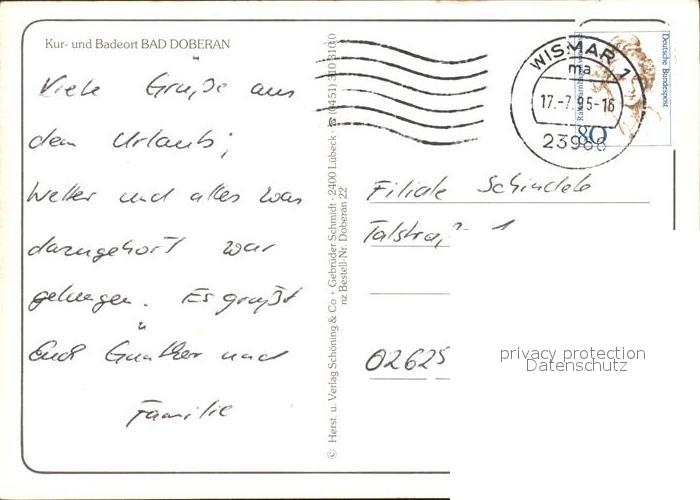 Kur- und Badeort BAD DOBERAN
Viele Grüße aus
dem Urlaub;
Wetter und alles was
dazugehört war
gelungen. Es grüßt
Euch Günther und
Familie
© Herst. u. Verlag Schöning & Co + Gebrüder Schmidt - 2400 Lübeck - ☎ (04 51) 310 310 0
nz Bestell-Nr. Doberan 22
WISMAR 1
ma
17.-7.95-16
23966
Deutsche Bundespost
80
Filiale Schindele
Talstraße 1
02625
privacy protection
Datenschutz